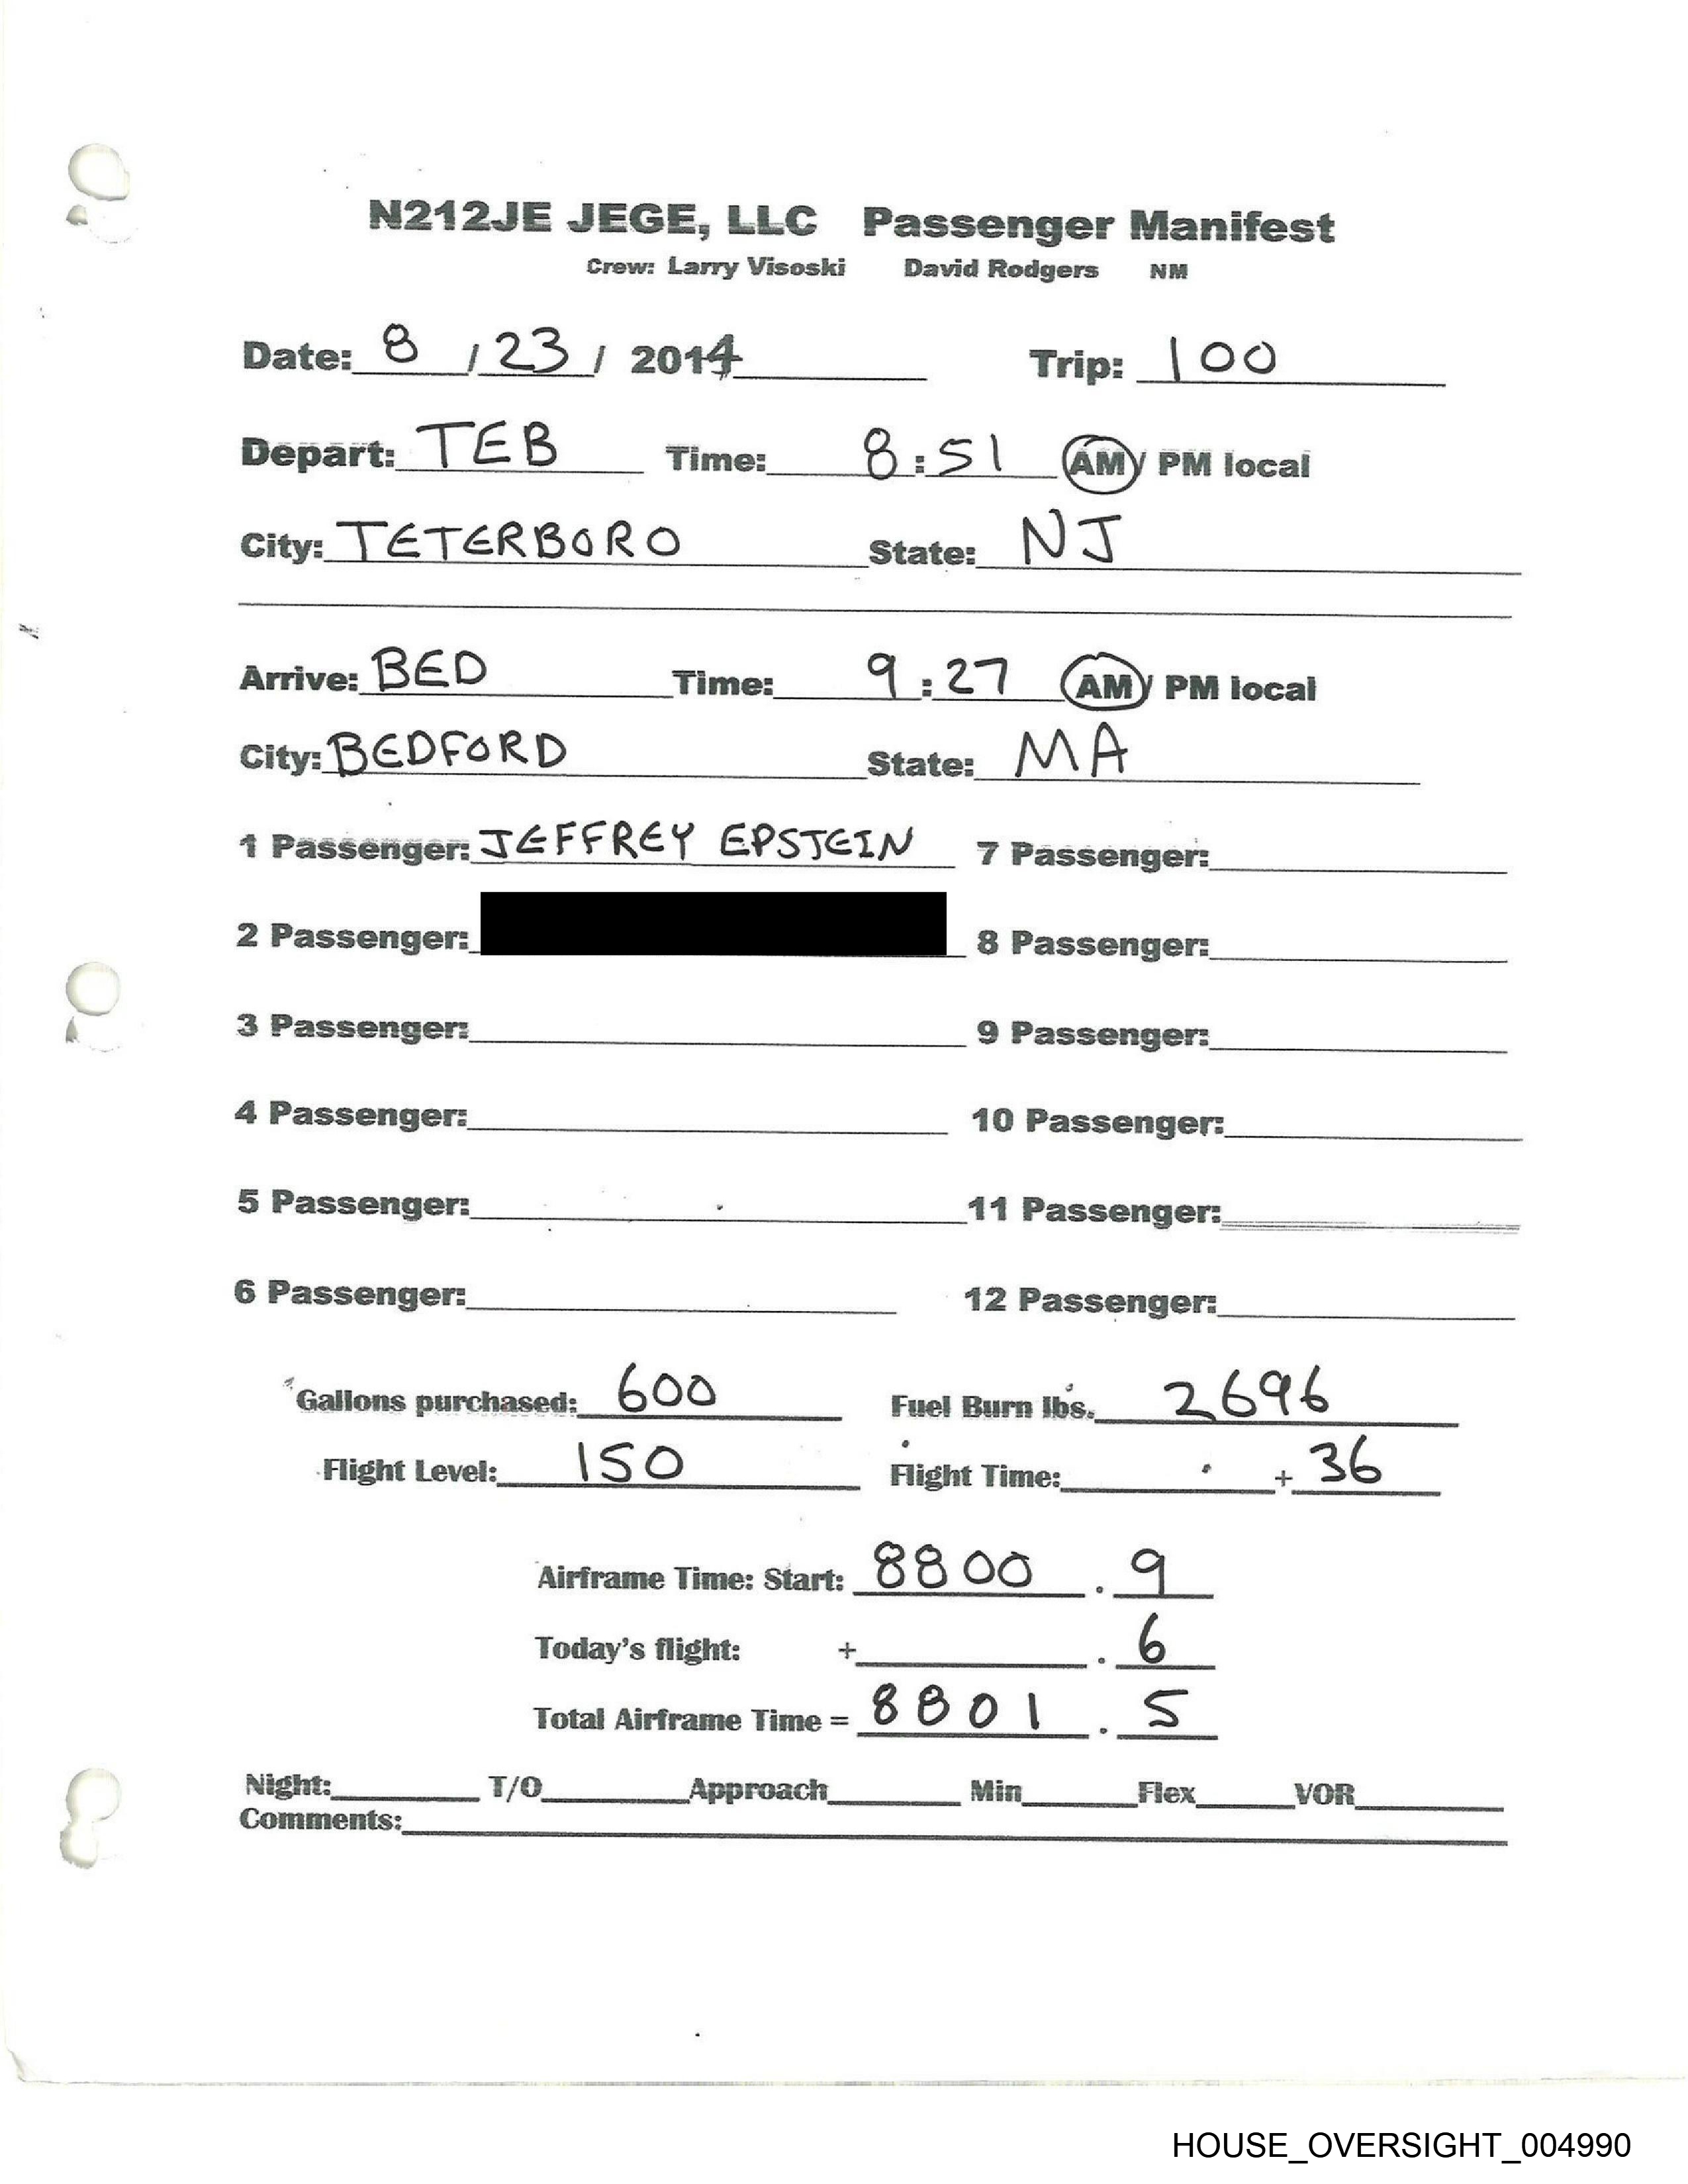 N212JE JEGE, LLC Passenger Manifest
Crew: Larry Visoski David Rodgers NM
Date: 8 / 23 / 2014 Trip: 100
Depart: TEB Time: 8:51 AM/ PM local
City: TETERBORO State: NJ
Arrive: BED Time: 9:27 AM/ PM local
City: BEDFORD State: MA
1 Passenger: JEFFREY EPSTEIN 7 Passenger:
2 Passenger: 8 Passenger:
3 Passenger: 9 Passenger:
4 Passenger: 10 Passenger:
5 Passenger: 11 Passenger:
6 Passenger: 12 Passenger:
Gallons purchased: 600 Fuel Burn lbs. 2696
Flight Level: 150 Flight Time: + 36
Airframe Time: Start: 8800 . 9
Today's flight: + . 6
Total Airframe Time = 8801 . 5
Night: T/O Approach Min Flex VOR
Comments:
HOUSE_OVERSIGHT_004990